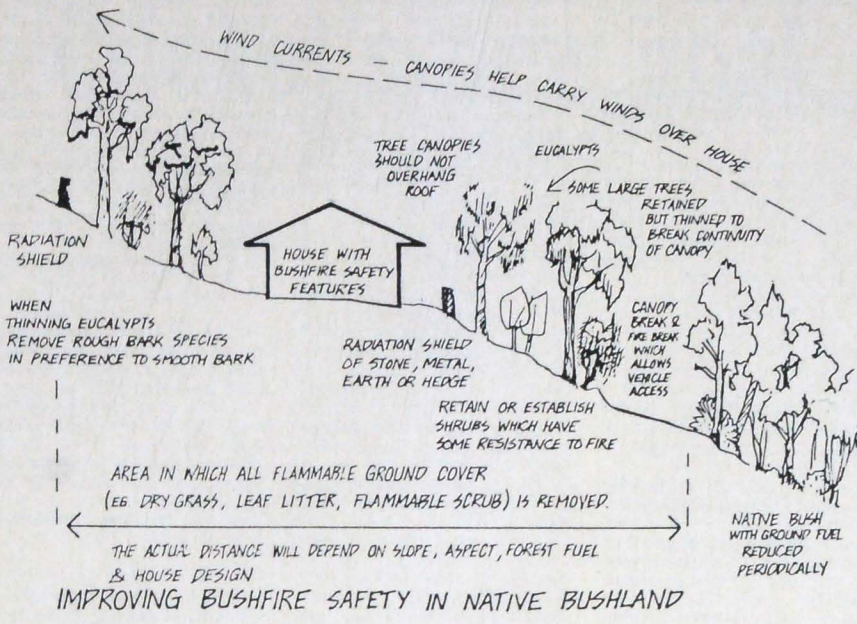 WIND CURRENTS – CANOPIES HELP CARRY WINDS OVER HOUSE
TREE CANOPIES
SHOULD NOT
OVERHANG
ROOF
EUCALYPTS
SOME LARGE TREES
RETAINED
BUT THINNED TO
BREAK CONTINUITY
OF CANOPY
RADIATION
SHIELD
HOUSE WITH
BUSHFIRE SAFETY
FEATURES
WHEN
THINNING EUCALYPTS
REMOVE ROUGH BARK SPECIES
IN PREFERENCE TO SMOOTH BARK
RADIATION SHIELD
OF STONE, METAL,
EARTH OR HEDGE
CANOPY
BREAK &
FIRE BREAK
WHICH
ALLOWS
VEHICLE
ACCESS
RETAIN OR ESTABLISH
SHRUBS WHICH HAVE
SOME RESISTANCE TO FIRE
AREA IN WHICH ALL FLAMMABLE GROUND COVER
(EG. DRY GRASS, LEAF LITTER, FLAMMABLE SCRUB) IS REMOVED.
THE ACTUAL DISTANCE WILL DEPEND ON SLOPE, ASPECT, FOREST FUEL
& HOUSE DESIGN
NATIVE BUSH
WITH GROUND FUEL
REDUCED
PERIODICALLY
IMPROVING BUSHFIRE SAFETY IN NATIVE BUSHLAND